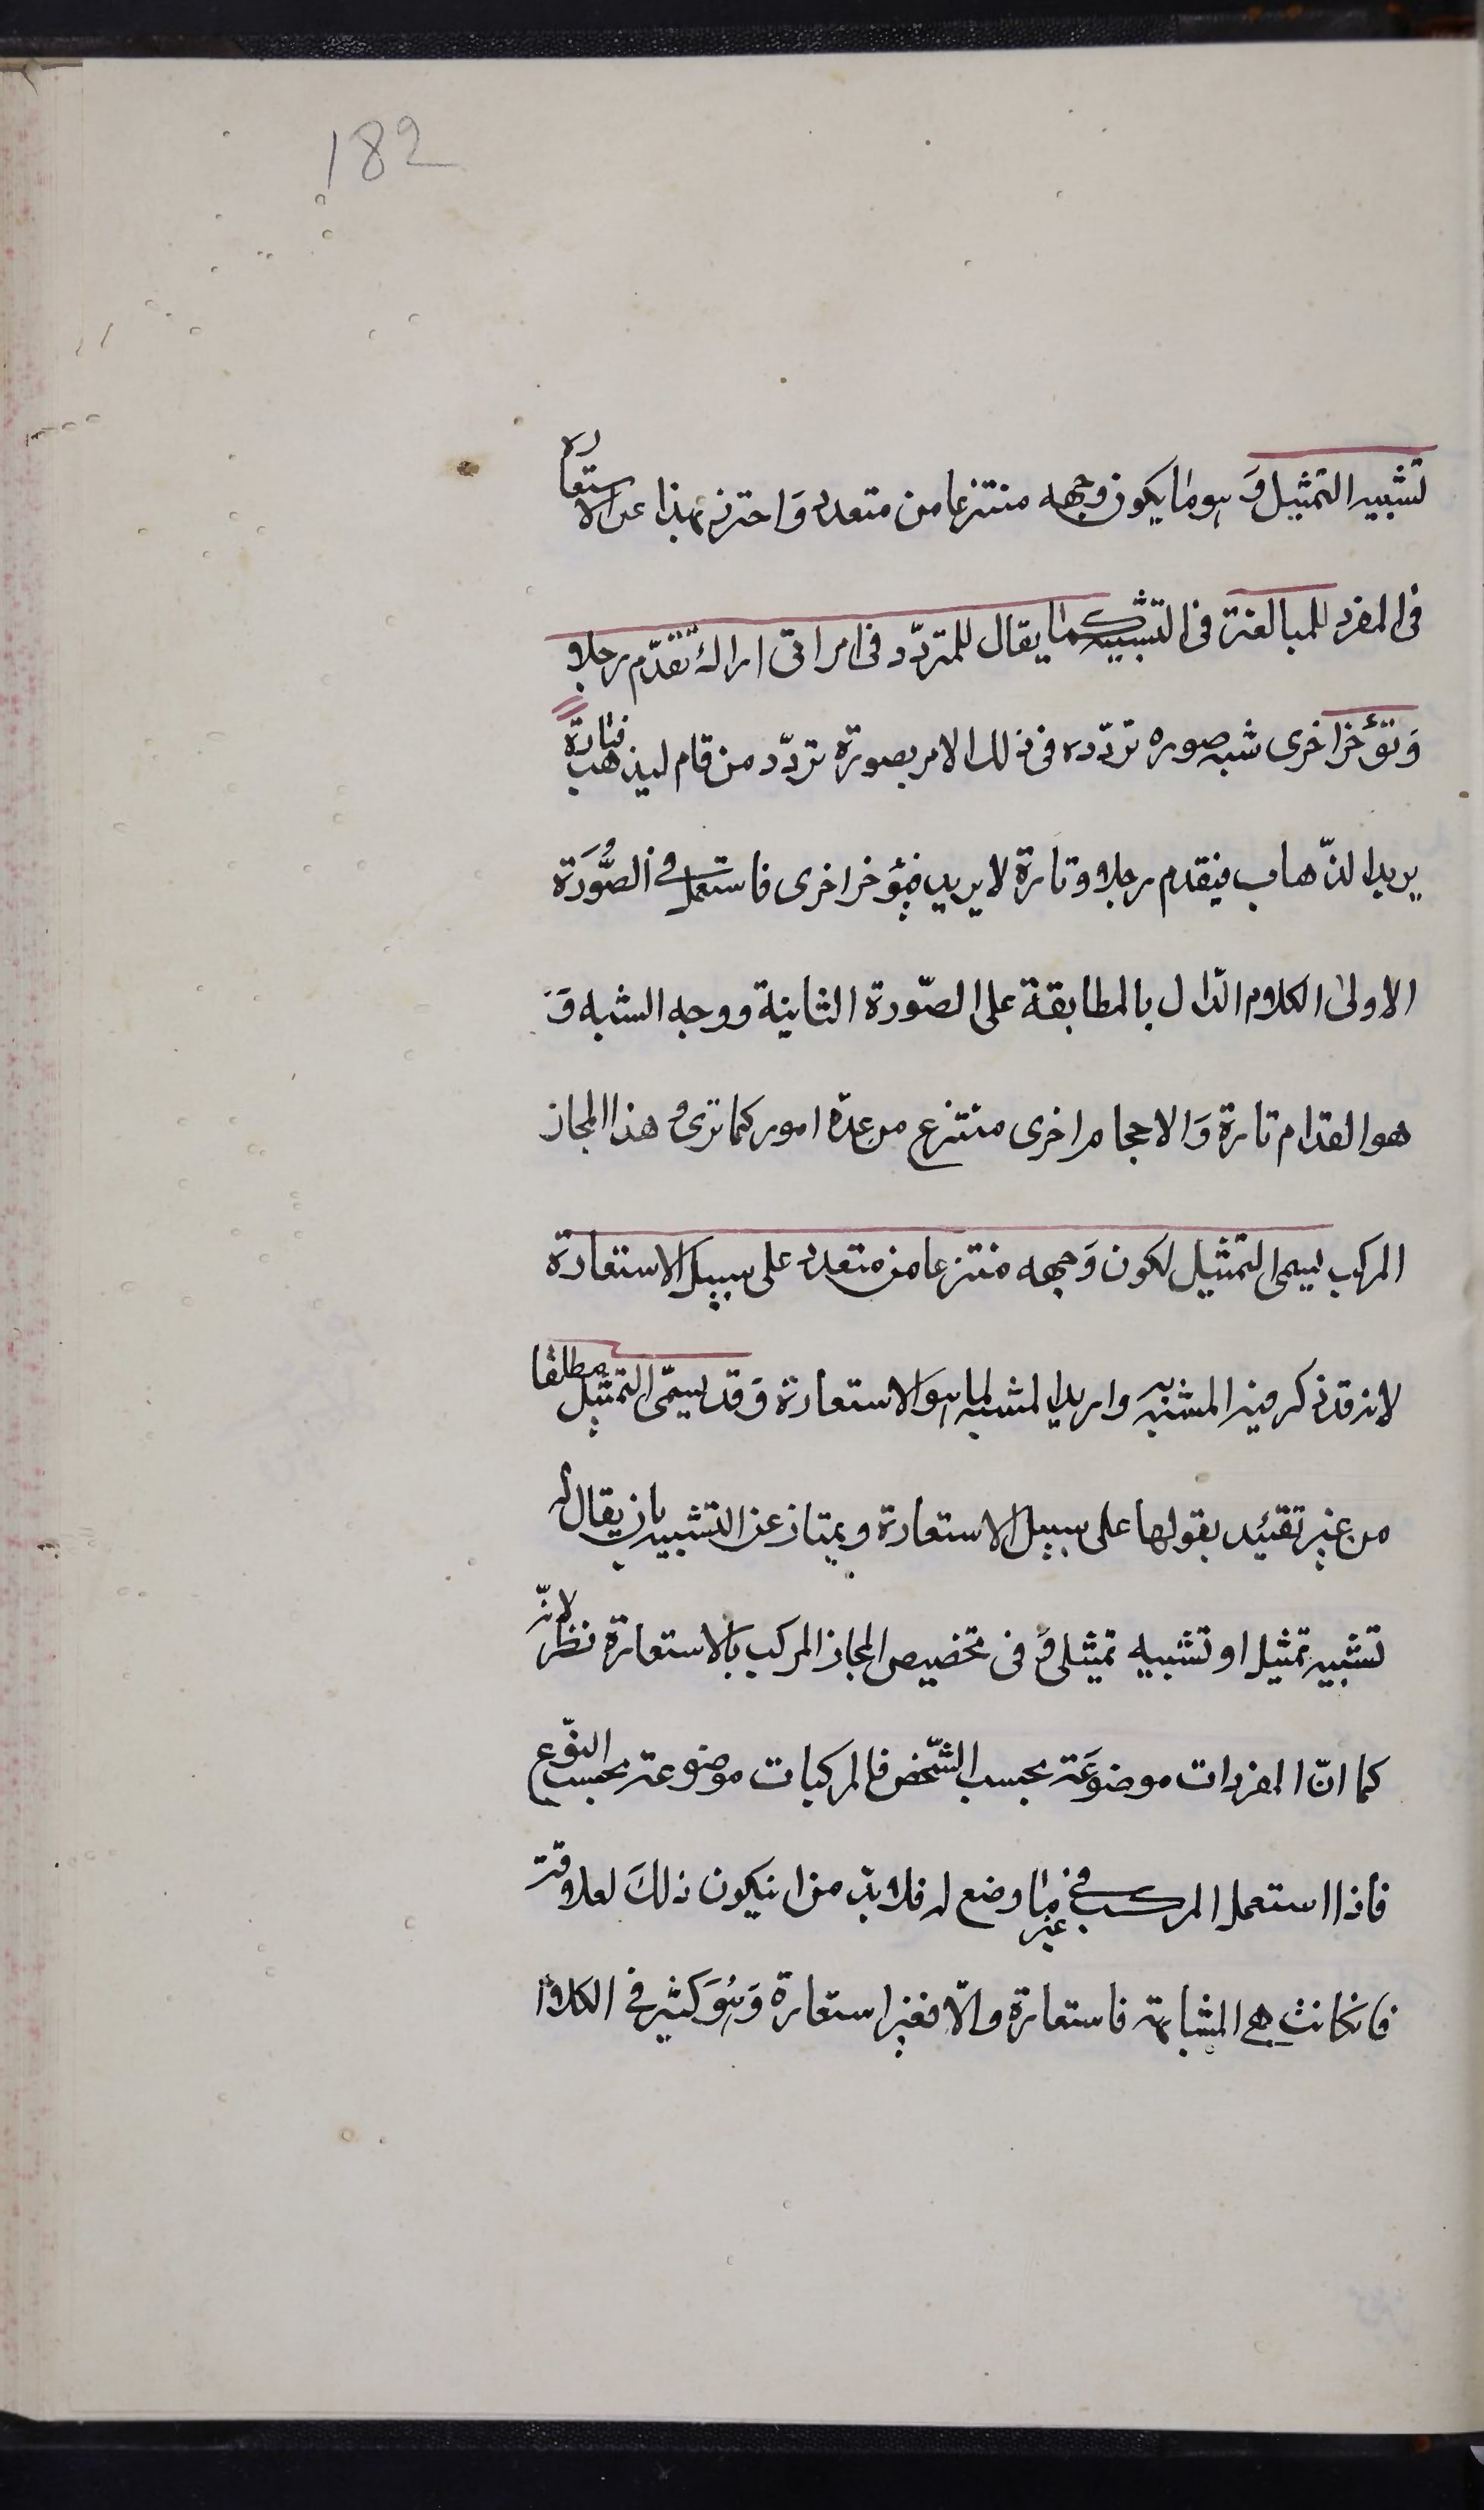 182
تشبيه التمثيل وَ هو ما يكون وجهه منتزعا من متعدد وَ احترز بهذا عن الاستعارة
فى المفرد للمبالغة فى التشبيه كما يقال للمتردّد فى امر انى اراك تقدّم رجلا
وَ تؤخر اخرى شبه صوره تردّده فى ذلك الامر بصورة تردّد من قام ليذهب فتارة
يريد الذّهاب فيقدم رجلا و تارة لا يريد فيؤخر اخرى فاستعمل فى الصُّورَة
الاولى الكلام الدّال بالمطابقة على الصّورة الثانية و وجه الشبه وَ
هو القدام تارة وَ الاحجام اخرى منتزع من عدّة امور كما ترى وَ هذا المجاز
المركب يسمى التمثيل لكون وَجهه منتزعا من متعدد على سبيل الاستعارة
لانه قد ذكر فيه المشبّه به و اريد المشبه كما هو الاستعارة وَ قد يسمّى التمثيل مطلقا
من غير تقئيد بقولها على سبيل الاستعارة و يمتاز عن التشبيه بان يقال له
تشبيه تمثيل او تشبيه تمثيلى وَ فى تخصيص المجاز المركب بالاستعارة نظر لانّه
كما انّ المفردات موضوعَة بحسب الشّخص فالمركبات موضوعة بحسب النوّع
فاذا استعمل المركب فى غير ما وضع له فلا بدّ من ان يكون ذلكَ لعلاقة
فان كانت هى المشابهة فاستعارة و الّا فغير استعارة وَ هُوَ كثير فى الكلام